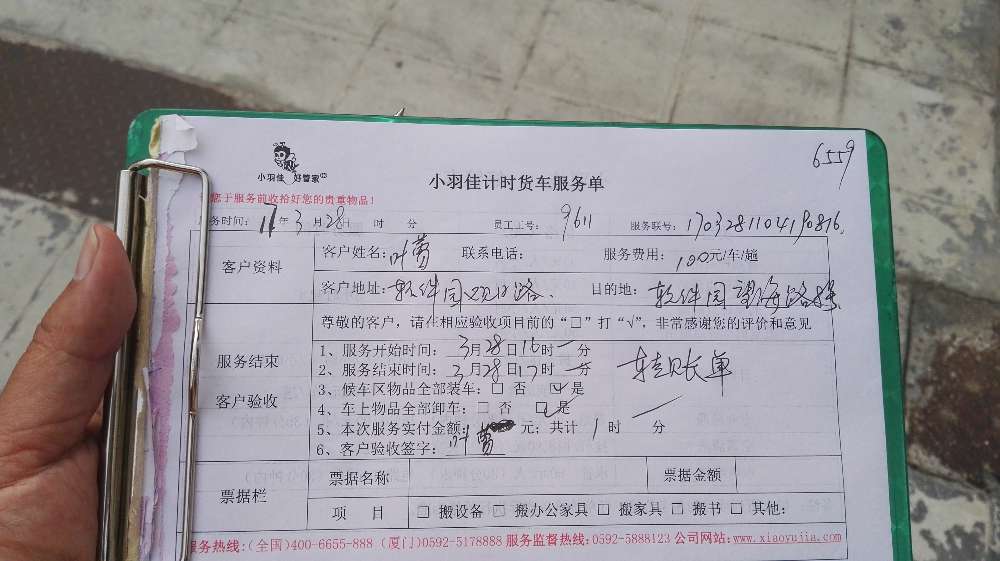 6559
小羽佳 好管家
小羽佳计时货车服务单
您于服务前收拾好您的贵重物品！
务时间：17年3月28日 时 分 员工工号：9611 服务联号：1703281104190876
客户资料
客户姓名：叶茑 联系电话： 服务费用：100元/车/趟
客户地址：软件园观日路 目的地：软件园望海路
尊敬的客户，请在相应验收项目前的“□”打“√”，非常感谢您的评价和意见
服务结束
客户验收
1、服务开始时间：3月28日16时一分
2、服务结束时间：3月28日17时一分
转账单
3、候车区物品全部装车：□ 否 ☑是
4、车上物品全部卸车：□ 否 ☑是
5、本次服务实付金额： 元；共计1时 分
6、客户验收签字：叶茑
票据栏
票据名称 票据金额
项 目 □ 搬设备 □ 搬办公家具 □ 搬家具 □ 搬书 □ 其他：
服务热线：(全国)400-6655-888 (厦门)0592-5178888 服务监督热线：0592-5888123 公司网站：www.xiaoyujia.com